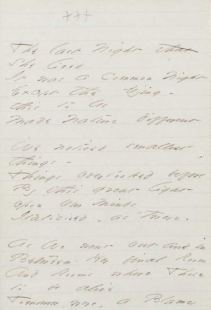 +++
The last Night that
She lived
It was a Common Night
Except the Dying -
this to Us
Made Nature different
We noticed smallest
things -
Things overlooked before
By this great light
upon Our minds
Italicized - as 'twere.
As We went out and in
Between Her final Room
And Rooms where Those
to be alive
Tomorrow, were, a Blame